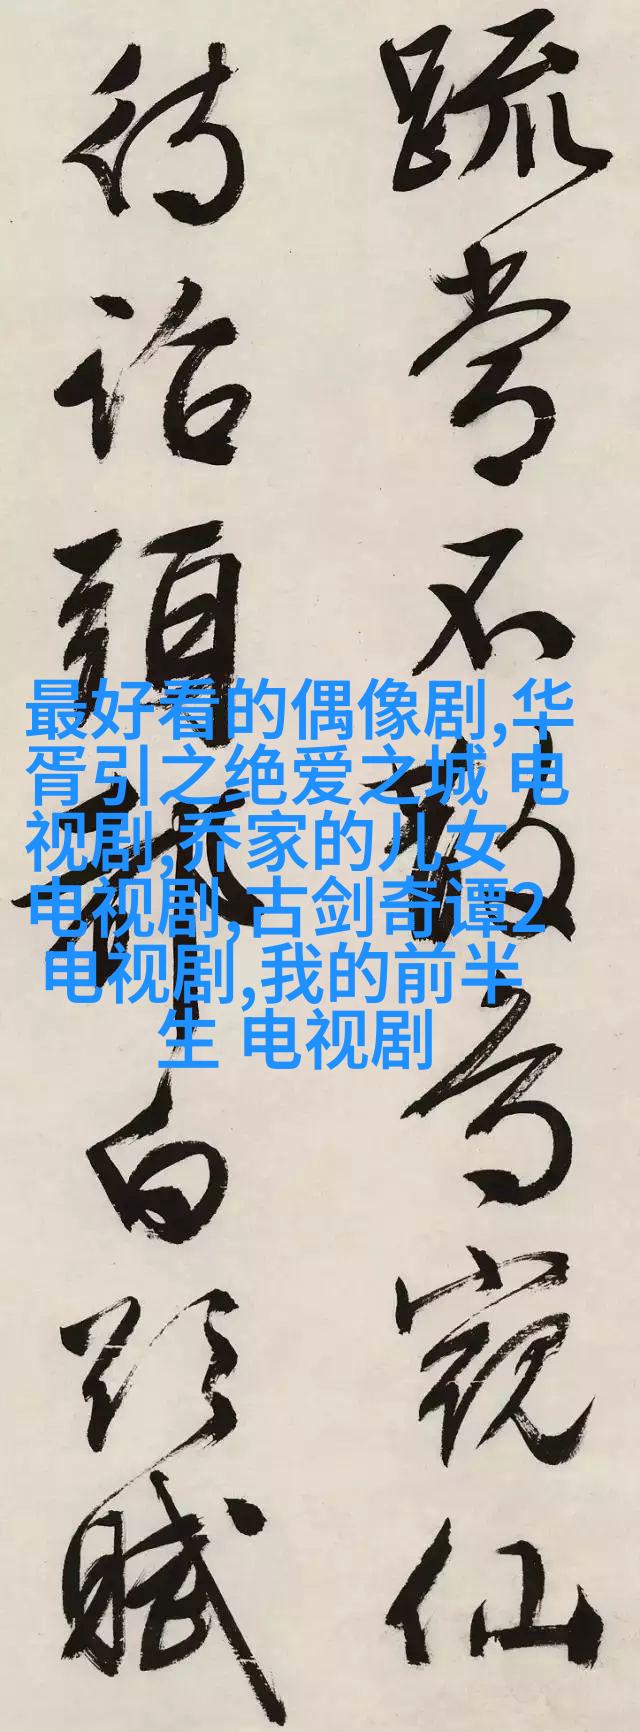 踪尝不敢高窥仙
待诏頭
白頭賦
最好看的偶像剧,华
胥引之绝爱之城 电
视剧,乔家的儿女
电视剧,古剑奇谭2
电视剧,我的前半
生 电视剧